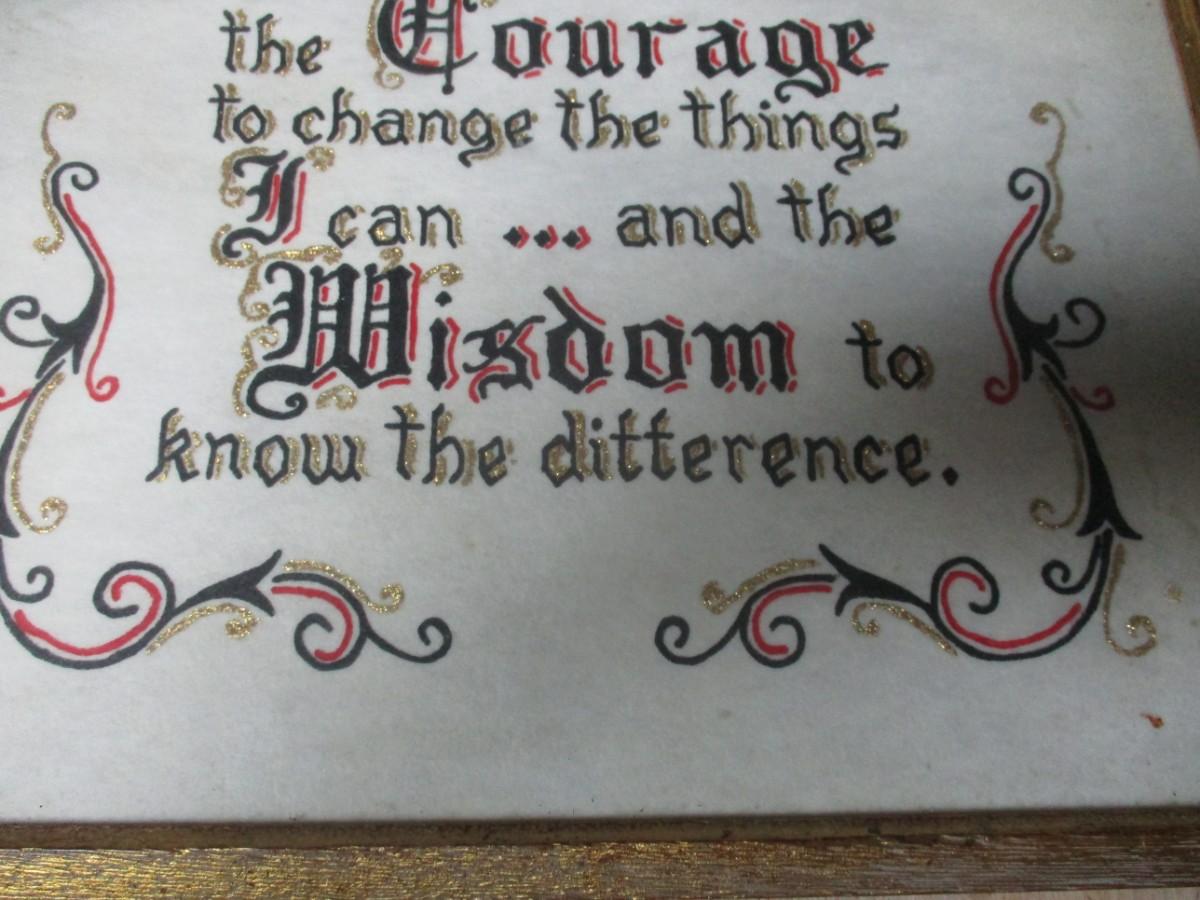 the Courage
to change the things
I can ... and the
Wisdom to
know the difference.